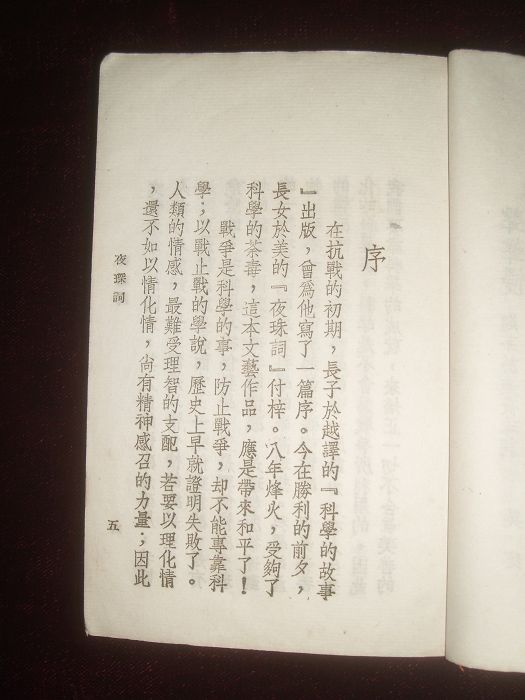 序
在抗戰的初期，長子於越譯的『科學的故事
』出版，曾爲他寫了一篇序。今在勝利的前夕，
長女於美的『夜珠詞』付梓。八年烽火，受夠了
科學的荼毒，這本文藝作品，應是帶來和平了！
戰爭是科學的事，防止戰爭，却不能專靠科
學；以戰止戰的學說，歷史上早就證明失敗了。
人類的情感，最難受理智的支配，若要以理化情
，還不如以情化情，尙有精神感召的力量；因此
夜珠詞
五